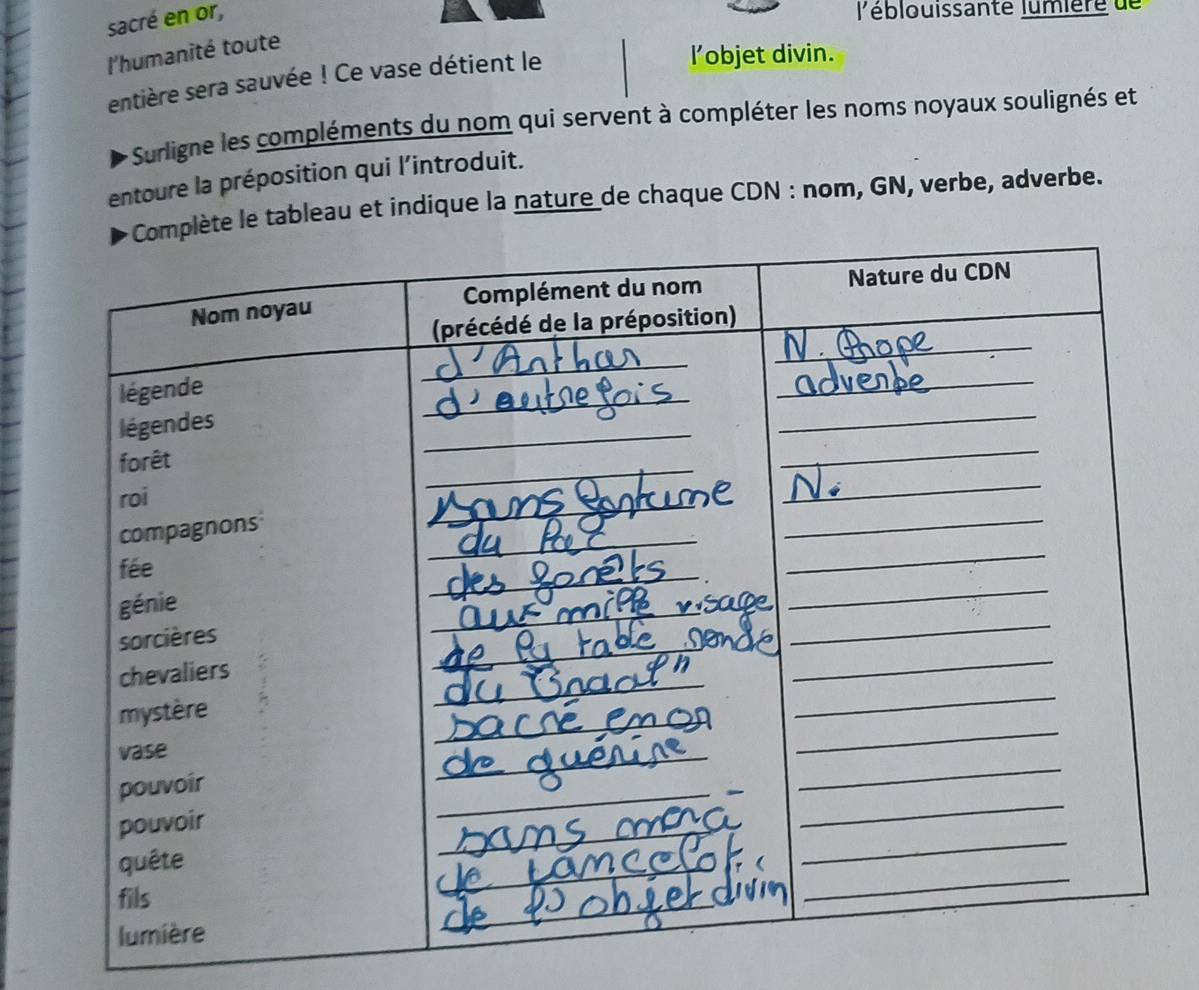 sacré en or,
l'humanité toute
entière sera sauvée ! Ce vase détient le
l'éblouissante lumière de
l'objet divin.
▶Surligne les compléments du nom qui servent à compléter les noms noyaux soulignés et
entoure la préposition qui l'introduit.
▶Complète le tableau et indique la nature de chaque CDN : nom, GN, verbe, adverbe.
Nom noyau
Complément du nom
(précédé de la préposition)
Nature du CDN
légende d'Arthur N. Propre
légendes d'autrefois adverbe
forêt
roi
compagnons sans fortune N.
fée du lac
génie des forêts
sorcières aux mille visage
chevaliers de la table ronde
mystère du Graal"
vase sacré en or
pouvoir de guérir
pouvoir
quête sans
fils de Lancelot.
lumière de l'objet divin